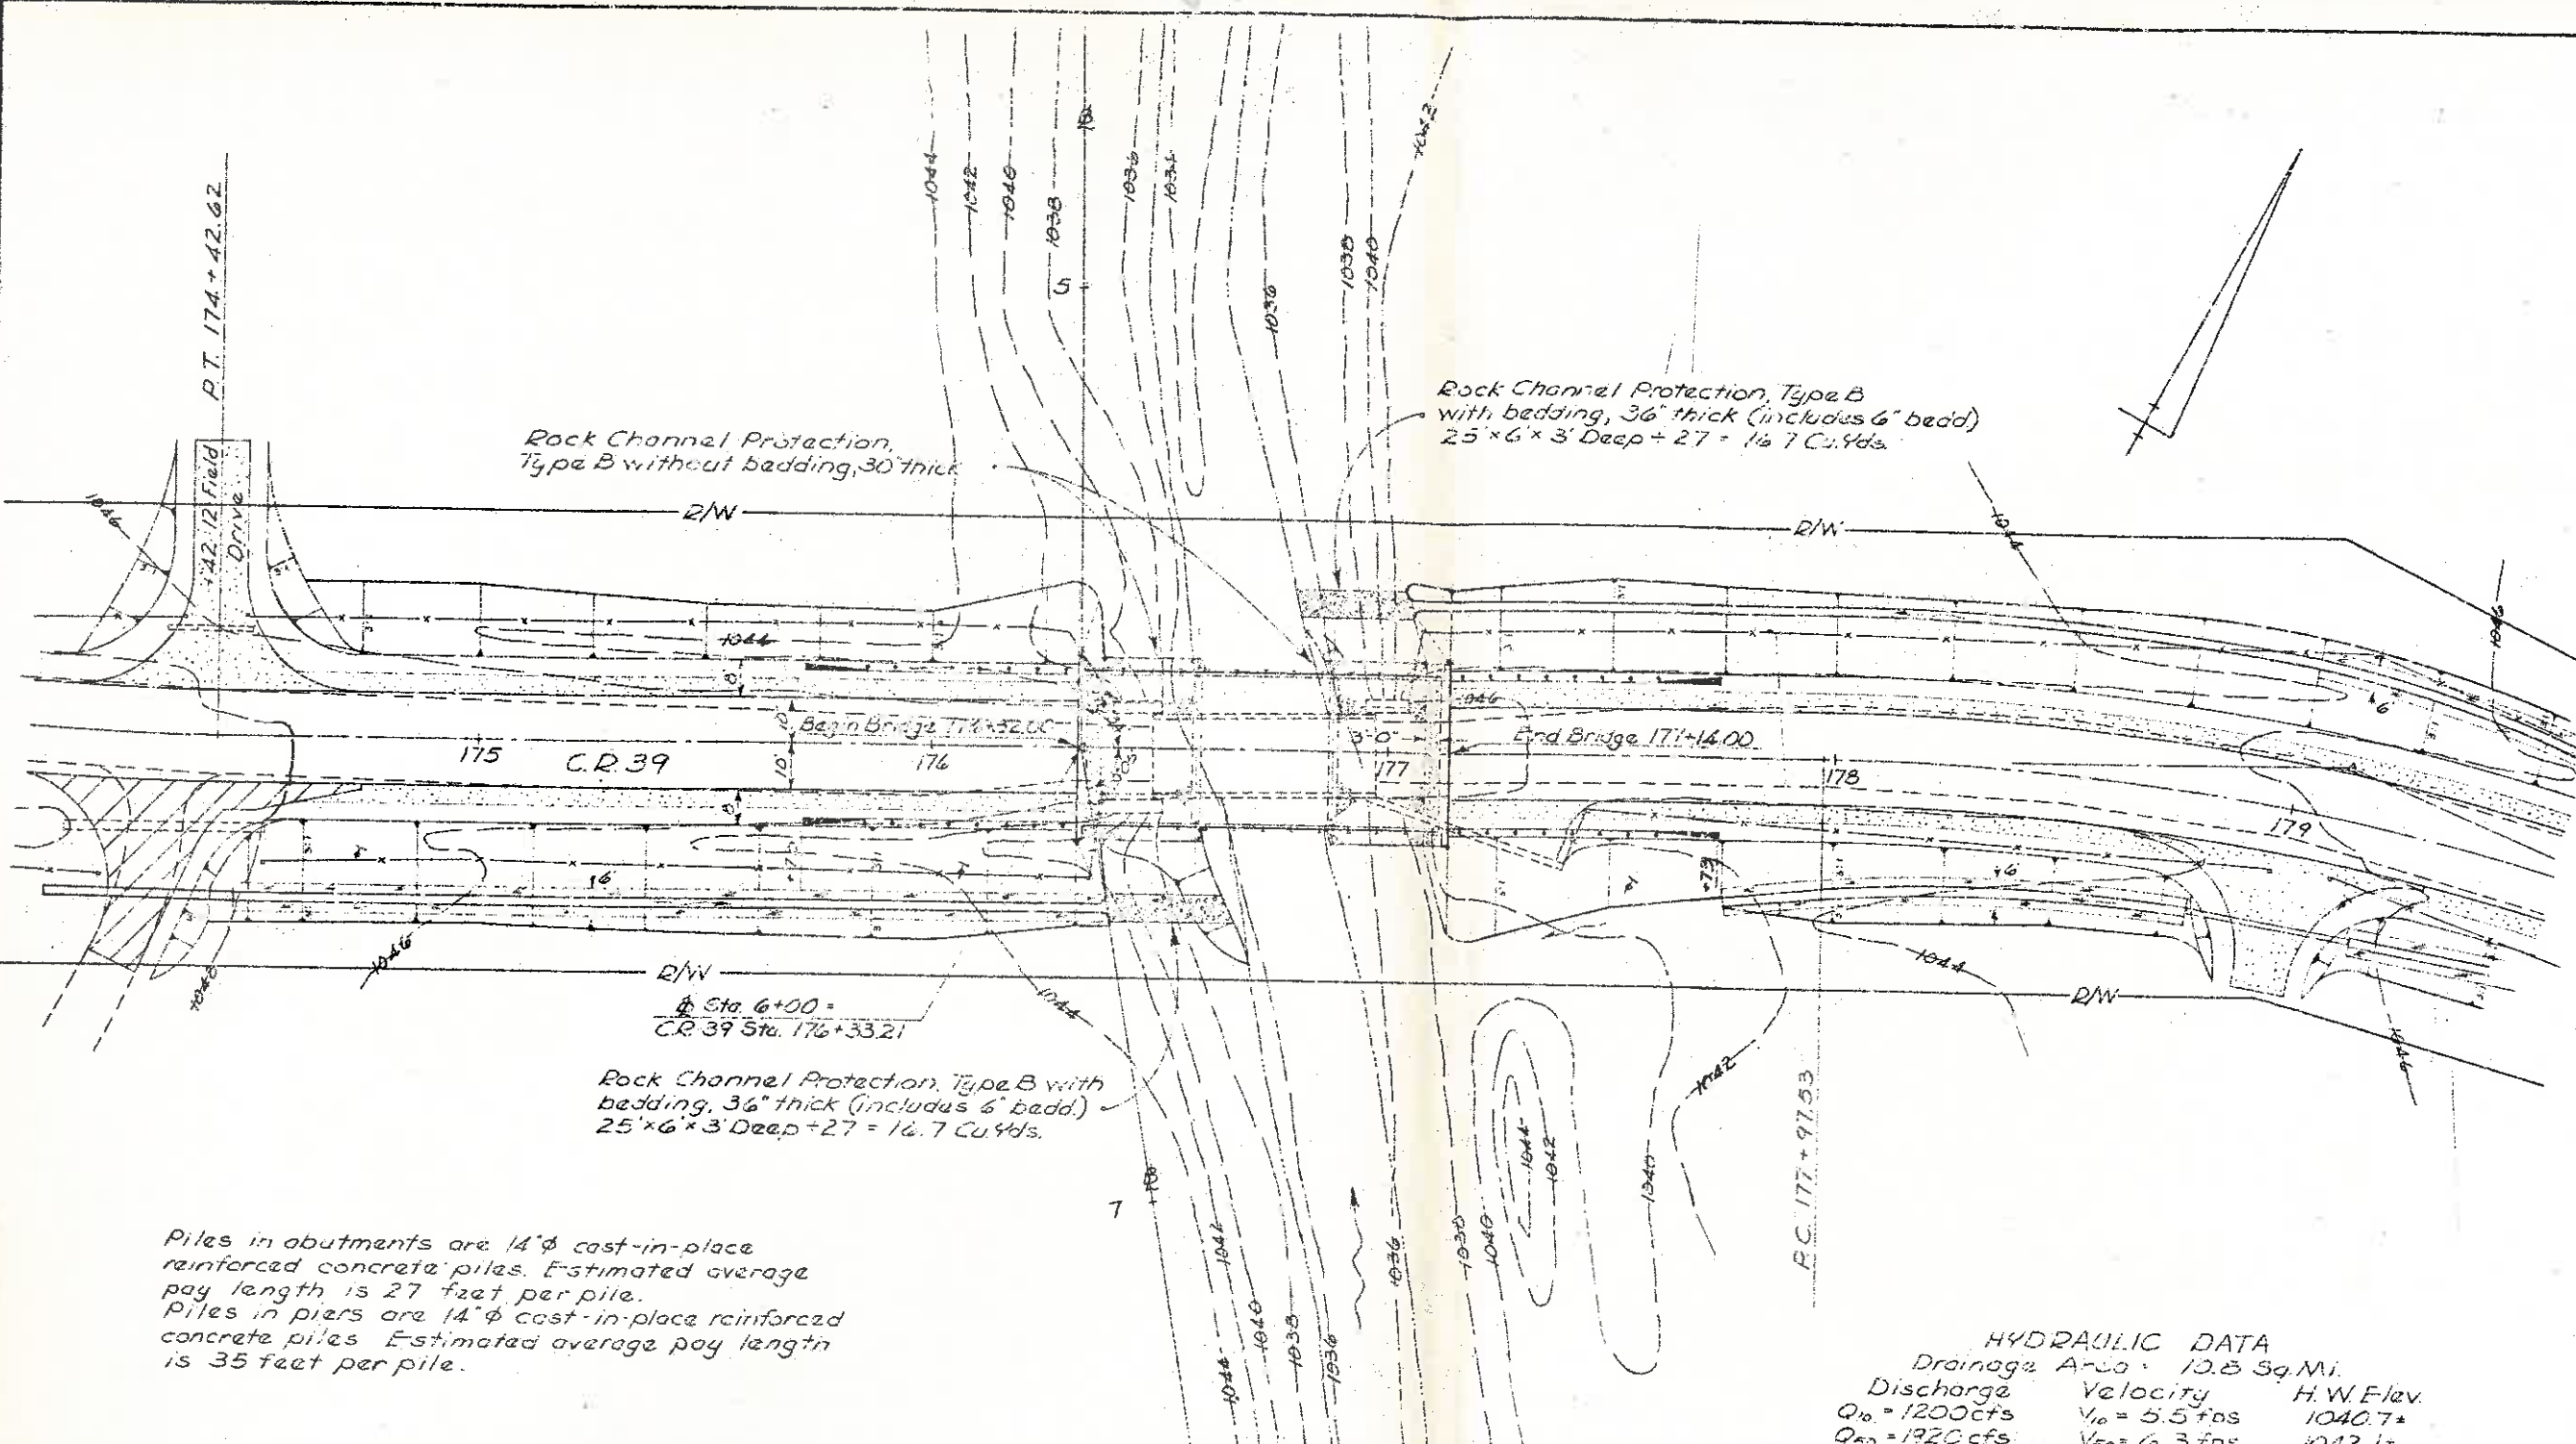 P.T. 174+42.62
1044
1042
1040
1038
1036
1034
5
1036
1038
1040
1042
Rock Channel Protection, Type B
with bedding, 36" thick (includes 6" bedd)
25'x6'x3' Deep ÷ 27 = 16.7 Cu.Yds.
Rock Channel Protection,
Type B without bedding, 30" thick
+42 12' Field
Drive
1046
R/W
R/W
1044
1046
1044
8'
10'
10'
8'
Begin Bridge 176+32.00
End Bridge 177+14.00
3'-0"
1046
175
C.R. 39
176
177
178
179
6
16
+73
16
1046
1046
R/W
1044
1044
R/W
1046
₵ Sta. 6+00 =
C.R. 39 Sta. 176+33.21
Rock Channel Protection, Type B with
bedding, 36" thick (includes 6" bedd.)
25'x6'x3' Deep ÷27 = 16.7 Cu.Yds.
1042
1044
1042
1040
P.C. 177+97.53
7
1044
1040
1038
1036
1036
1038
1040
Piles in abutments are 14"⌀ cast-in-place
reinforced concrete piles. Estimated average
pay length is 27 feet per pile.
Piles in piers are 14"⌀ cast-in-place reinforced
concrete piles Estimated average pay length
is 35 feet per pile.
HYDRAULIC DATA
Drainage Area = 10.8 Sq.Mi.
Discharge Velocity H.W. Elev.
Q₁₀ = 1200 cfs V₁₀ = 5.5 fps 1040.7±
Q₅₀ = 1920 cfs V₅₀ = 6.3 fps